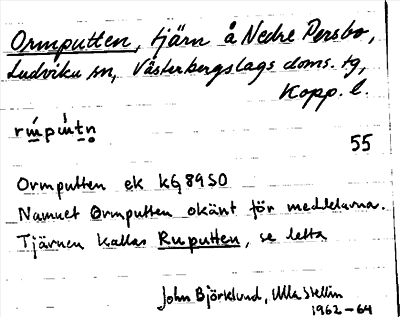 Ormputten, tjärn å Nedre Persbo,
Ludvika sn, Västerbergslags doms. tg,
Kopp. l.
55
Ormputten ek kG 8950
Namnet Ormputten okänt för meddelarna.
Tjärnen kallas Ruputten, se detta
John Björklund, Ulla Stellin
1962-64